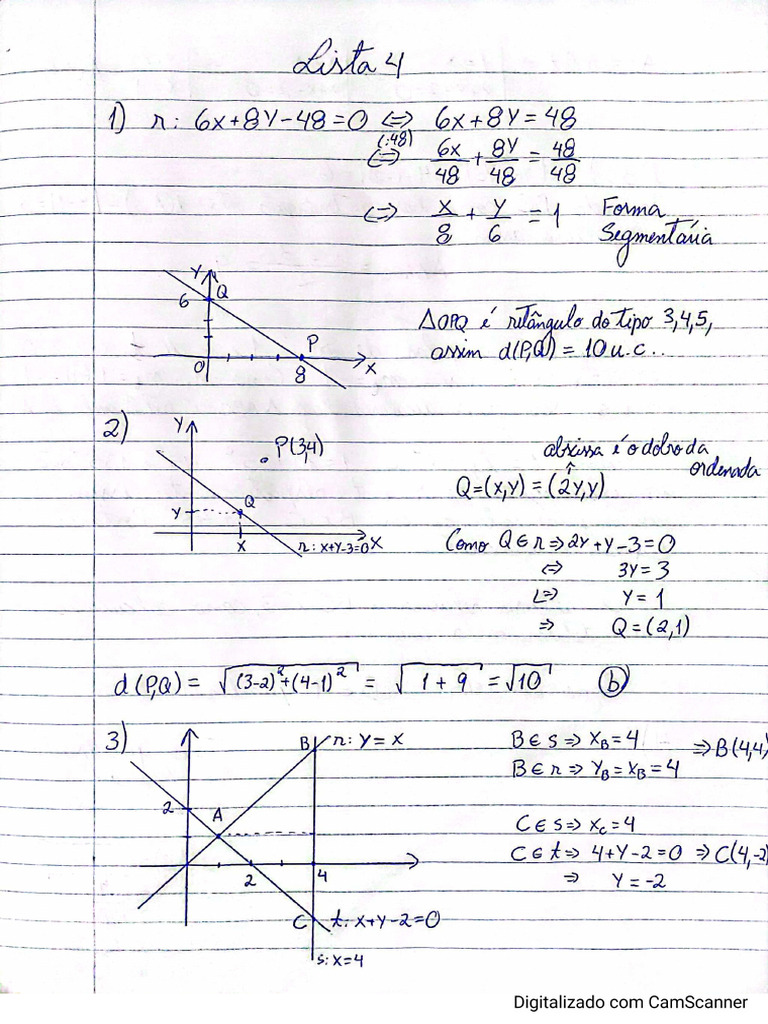 Lista 4
1) r: 6x+8y-48=0 ⇔ 6x+8y=48
(:48) ⇔ 6x/48 + 8y/48 = 48/48
⇔ x/8 + y/6 = 1 Forma Segmentária
y
6 Q
P
O 8 x
ΔOPQ é retângulo do tipo 3,4,5,
assim d(P,Q) = 10 u.c..
2)
y
P(3,4)
Q
y
x r: x+y-3=0 x
abscissa é o dobro da ordenada
↑
Q=(x,y)=(2y,y)
Como Q∈r ⇒ 2y+y-3=0
⇔ 3y=3
⇔ y=1
⇒ Q=(2,1)
d(P,Q) = √((3-2)²+(4-1)²) = √(1+9) = √10 (b)
3)
B r: y=x
2 A
2 4
C t: x+y-2=0
s: x=4
B∈s ⇒ x_B=4
B∈r ⇒ y_B=x_B=4 ⇒ B(4,4)
C∈s ⇒ x_C=4
C∈t ⇒ 4+y-2=0 ⇒ C(4,-2)
⇒ y=-2
Digitalizado com CamScanner